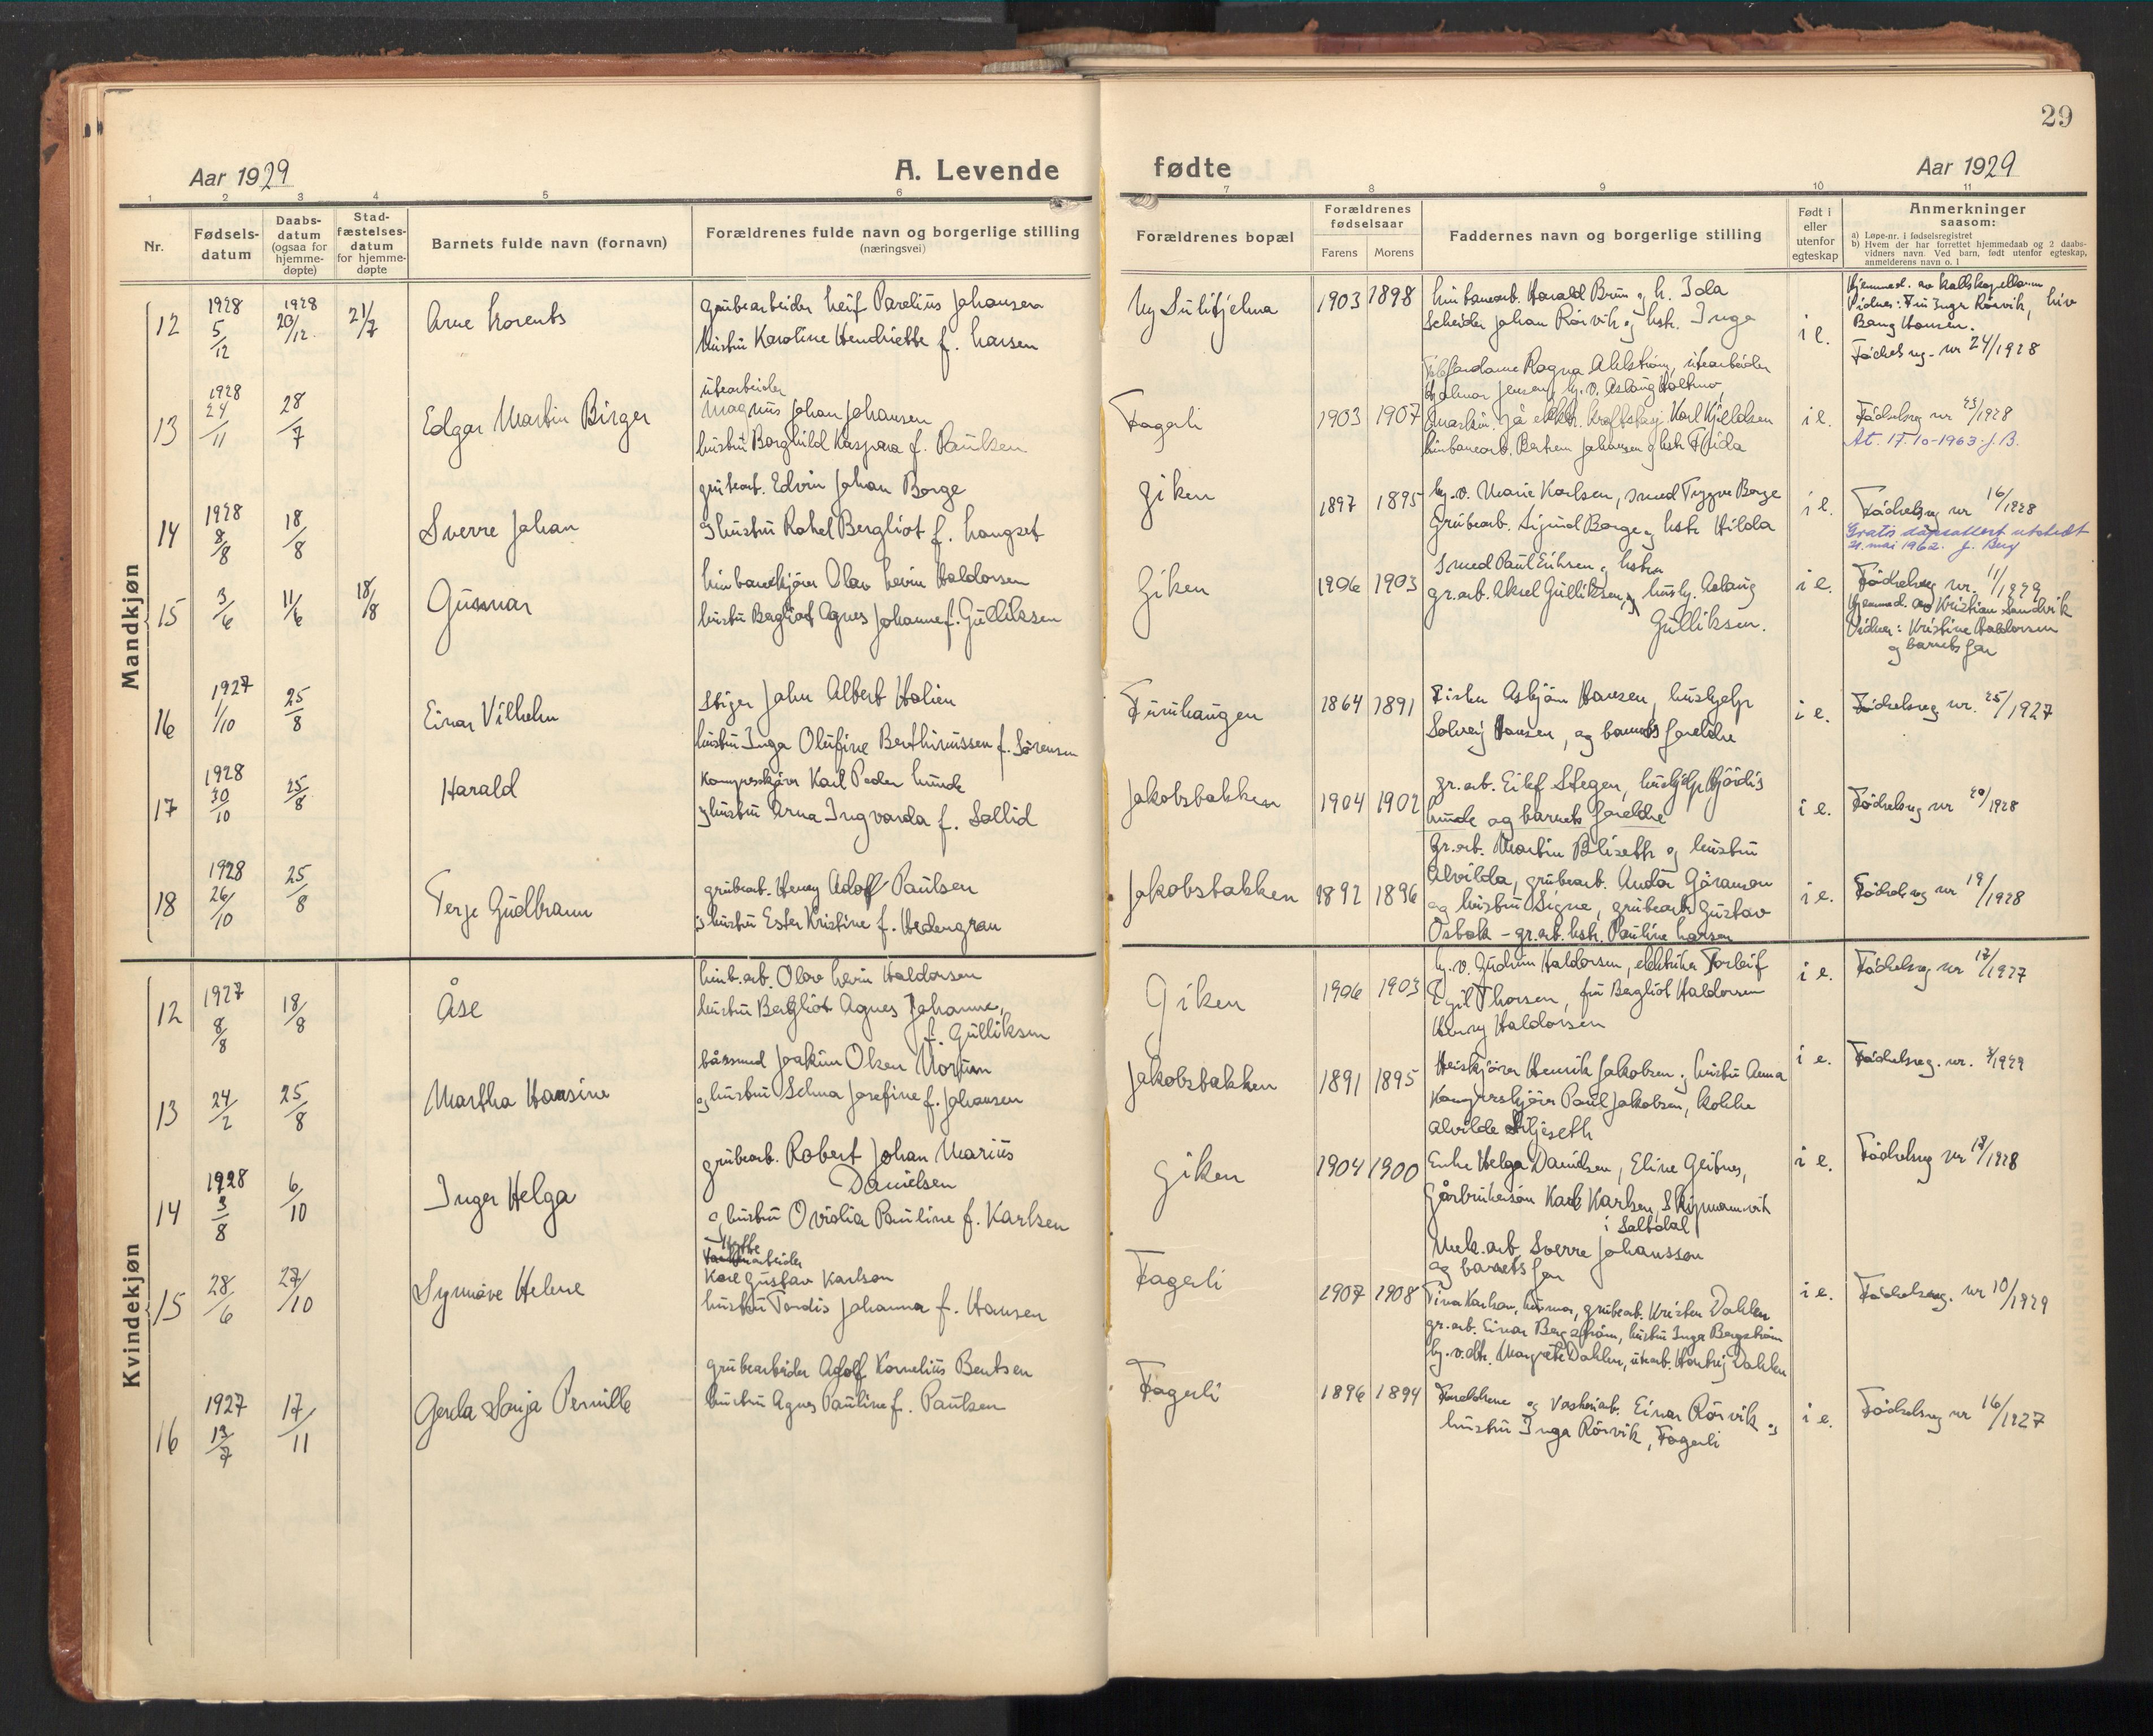 29
Aar 1929
A. Levende
fødte
Aar 1929
1 2 3 4 5 6 7 8 9 10 11
Nr.
Fødsels-
datum
Daabs-
datum
(ogsaa for
hjemme-
døpte)
Stad-
fæstelses-
datum
for hjemme-
døpte
Barnets fulde navn (fornavn)
Forældrenes fulde navn og borgerlige stilling
(næringsvei)
Forældrenes bopæl
Forældrenes
fødselsaar
Farens
Morens
Faddernes navn og borgerlige stilling
Født i
eller
utenfor
egteskap
Anmerkninger
saasom:
a) Løpe-nr. i fødselsregistret
b) Hvem der har forrettet hjemmedaab og 2 daabs-
vidners navn. Ved barn, født utenfor egteskap,
anmelderens navn o. l
Mandkjøn
12
1928
5/12
1928
20/12
21/7
Arne Lorents
grubearbeider Leif Parelius Johansen
hustru Karoline Hendriette f. Larsen
Ny Sulitjelma
1903 1898
linbanearb. Harald Brun og h. Ida
Scheider Johan Rørvik og hstr. Inga
i e.
Hjemmed. av
Vidner: Fru Inga Rørvik, Liv
Bang Hansen.
Fødselsreg. nr 24/1928
13
1928
24/11
28/7
Edgar Martin Birger
utearbeider
Magnus Johan Johansen
hustru Borghild Kaspara f. Paulsen
Fagerli
1903 1907
Ragna Ahlstrøm, utearbeider
Hjalmar Jensen, ug. v. Aslaug Holtmo,
Karl Kjeldsen
linbanearb. Johansen og hstr Frida
i e.
Fødselsreg nr 23/1928
At. 17.10-1963. J. B.
14
1928
8/8
18/8
Sverre Johan
grubearb. Edvin Johan Borge
og hustru Rakel Bergliot f. Langset
Giken
1897 1895
ug. v. Marie Karlsen, smed Trygve Borge
Grubearb. Sigurd Borge og hstr Hilda
i e.
Fødselsreg nr 16/1928
Gratis dåpsattest utstedt
21. mai 1962. J. Berg
15
3/6
11/6
18/8
Gunnar
linbanekjører Olav Levin Haldorsen
hustru Bergliot Agnes Johanne f. Gulliksen
Giken
1906 1903
Smed Paul Eriksen og hstru
gr. arb. Aksel Gulliksen, og Aslaug
Gulliksen.
i e.
Fødselsreg nr. 11/1929
Hjemmed. av Kristian Sandvik
Vidner: Kristine Haldorsen
og barnets far
16
1927
1/10
25/8
Einar Vilhelm
Stiger John Albert Holien
hustru Inga Olufine Berthinussen f. Sørensen
Furuhaugen
1864 1891
Fisker Asbjørn Hansen, hushjelp
Solveig Hansen, og barnets foreldre
i e.
Fødselsreg nr. 25/1927
17
1928
30/10
25/8
Harald
Kompresskjører Karl Peder Lunde
og hustru Arna Ingvarda f. Sollid
Jakobsbakken
1904 1902
gr. arb. Eilef Stegen, hushjelp Hjørdis
Lunde og barnets foreldre
i e.
Fødselsreg nr 20/1928
18
1928
26/10
25/8
Terje Gudbrann
grubearb. Henry Adolf Paulsen
og hustru Ester Kristine f. Hedengran
Jakobsbakken
1892 1896
Gr. arb. Martin Blixeth og hustru
Alvilda, grubearb. Göransson
og hustru Signe, grubearb Gustav
Osbak - gr. arb. hstr. Pauline Larsen
i e.
Fødselsreg nr 19/1928
Kvindekjøn
12
1927
8/8
18/8
Åse
linb. arb. Olav Levin Haldorsen
hustru Bergliot Agnes Johanne,
f. Gulliksen
Giken
1906 1903
ug. v. Gudrun Haldorsen, elektriker Torleif
Egil Thorsen, fru Bergliot Haldorsen
Henry Haldorsen
i e.
Fødselsreg nr 17/1927
13
24/2
25/8
Martha Hansine
båssmed Joakim Olsen Norum
og hustru Selma Josefine f. Johansen
Jakobsbakken
1891 1895
Heiskjører Henrik Jakobsen og hustru Anna
Kompresskjører Paul Jakobsen, kokke
Alvilde
i e.
Fødselsreg. nr. 3/1929
14
1928
3/8
6/10
Inger Helga
grubearb. Robert Johan Marius
Danielsen
og hustru Ovidia Pauline f. Karlsen
Giken
1904 1900
Enke Helga Danielsen, Eline
Gårbrukersøn Karl Karlsen, Skipmannvik
i Saltdal
i e.
Fødselsreg nr 18/1928
15
28/6
27/10
Synnøve Helene
Hytte
arbeider
Kåre Gustav Karlson
hustru Tordis Johanna f. Hansen
Fagerli
1907 1908
Mek. arb. Sverre Johansson
og barnets far
Tina Karlsen, husmor, grubearb. Kristen Dahlen
gr. arb. Einar Bergstrøm, hustru Inga Bergstrøm
ug. v. dtr. Margrete Dahlen, utearb. Dahlen
i e.
Fødselsreg. nr 10/1929
16
1927
13/7
17/11
Gerda Sonja Pernille
grubearbeider Adolf Kornelius Bentsen
hustru Agnes Pauline f. Paulsen
Fagerli
1896 1894
Foreldrene og vaskeriarb. Einar Rørvik og
hustru Inga Rørvik, Fagerli
i e.
Fødselsreg nr 16/1927